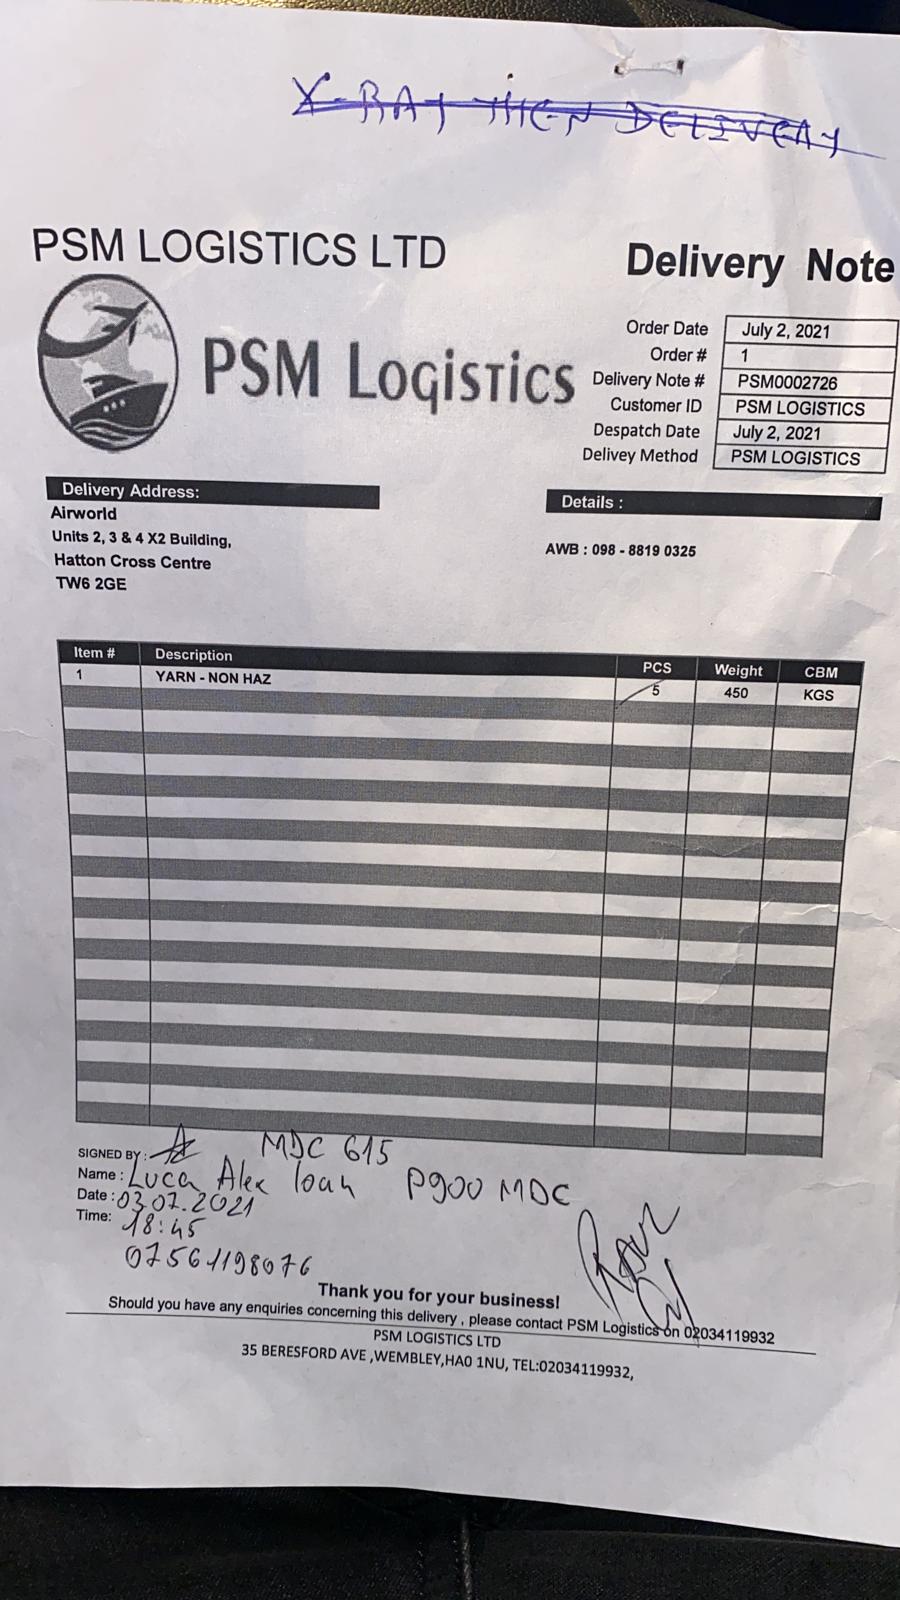 X-RAY THEN DELIVERY
PSM LOGISTICS LTD
Delivery Note
PSM Logistics
Order Date July 2, 2021
Order # 1
Delivery Note # PSM0002726
Customer ID PSM LOGISTICS
Despatch Date July 2, 2021
Delivey Method PSM LOGISTICS
Delivery Address:
Airworld
Units 2, 3 & 4 X2 Building,
Hatton Cross Centre
TW6 2GE
Details :
AWB : 098 - 8819 0325
Item # Description PCS Weight CBM
1 YARN - NON HAZ 5 450 KGS
SIGNED BY : MDC 615
Name : Luca Alex Ioan P900 MDC
Date : 03.07.2021
Time: 18:45
07561198076
Thank you for your business!
Should you have any enquiries concerning this delivery , please contact PSM Logistics on 02034119932
PSM LOGISTICS LTD
35 BERESFORD AVE ,WEMBLEY,HA0 1NU, TEL:02034119932,